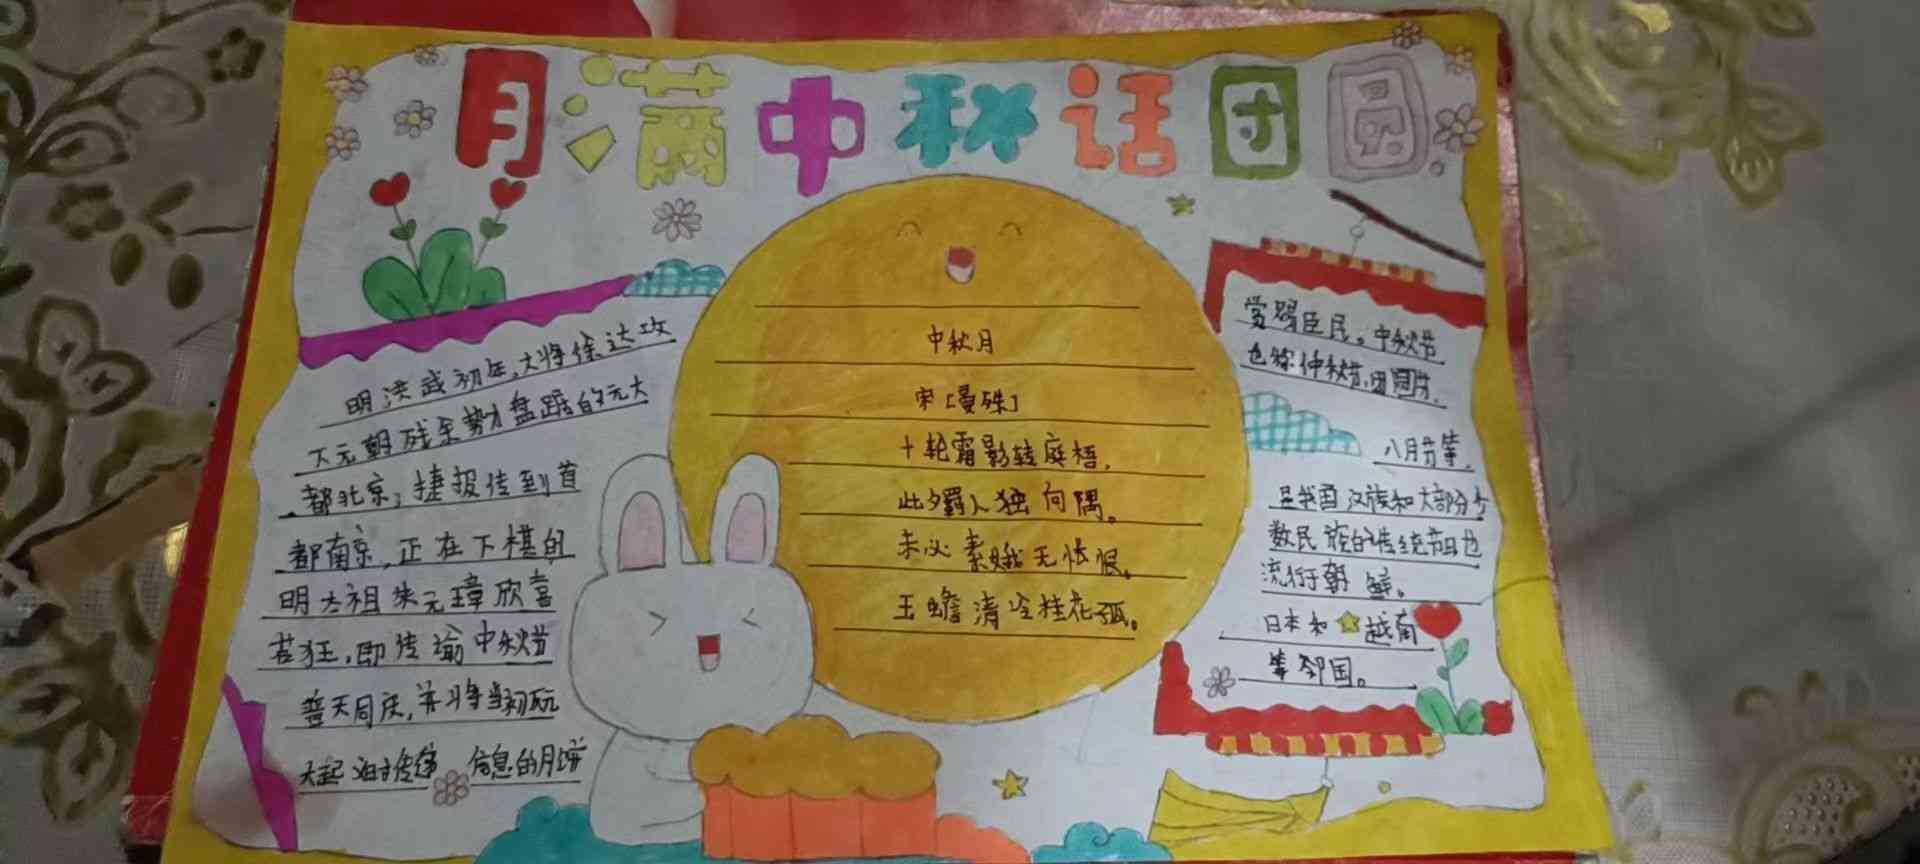 月满中秋话团圆
明洪武初年,大将徐达攻
下元朝残余势力盘踞的元大
都北京,捷报传到首
都南京,正在下棋的
明太祖朱元璋欣喜
若狂,即传谕中秋节
普天同庆,并将当初
大起 传递 信息的月饼
中秋月
宋[晏殊]
十轮霜影转庭梧,
此夕羁人独向隅。
未必素娥无怅恨,
玉蟾清冷桂花孤。
赏赐臣民。中秋节
也称仲秋节,团圆节,
八月节等,
是我国汉族和大部分少
数民族的传统节日也
流行于朝鲜。
日本和越南
等邻国。